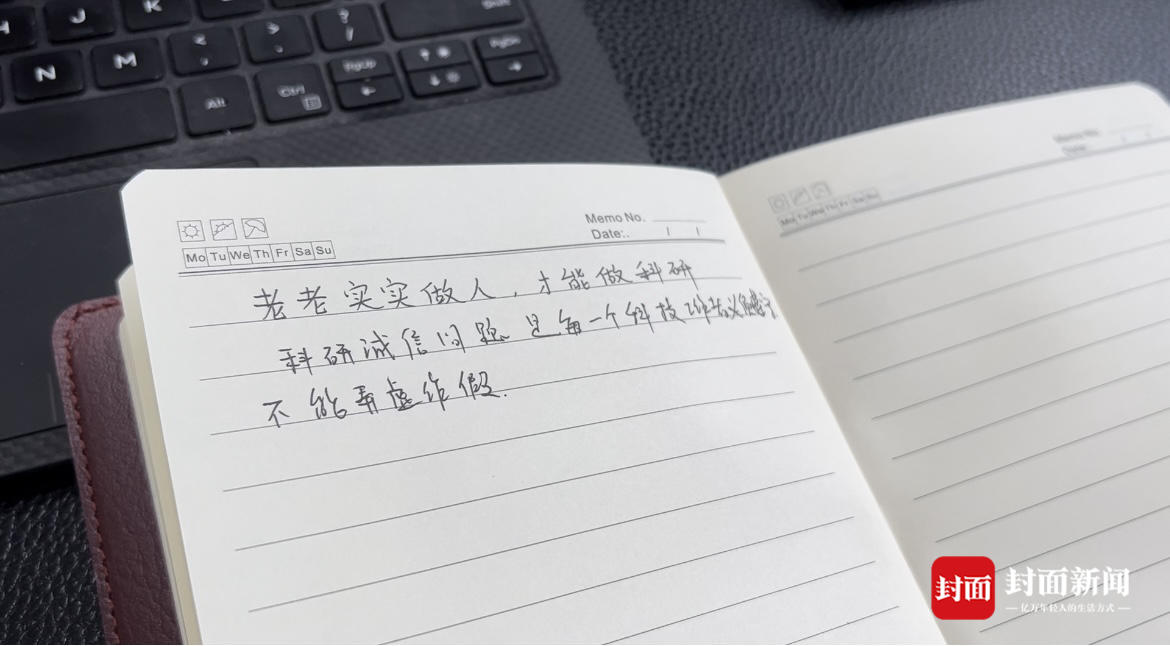 J
K
N
M
<
,
>
.
?
/
Alt
Ctrl
PgUp
PgDn
Memo No.
Date:
Mo Tu We Th Fr Sa Su
老老实实做人，才能做科研
科研诚信问题是每一个科技工作者必须
不能弄虚作假.
Memo No.
Date:
Mo Tu We Th Fr Sa Su
封面
封面新闻
亿万年轻人的生活方式